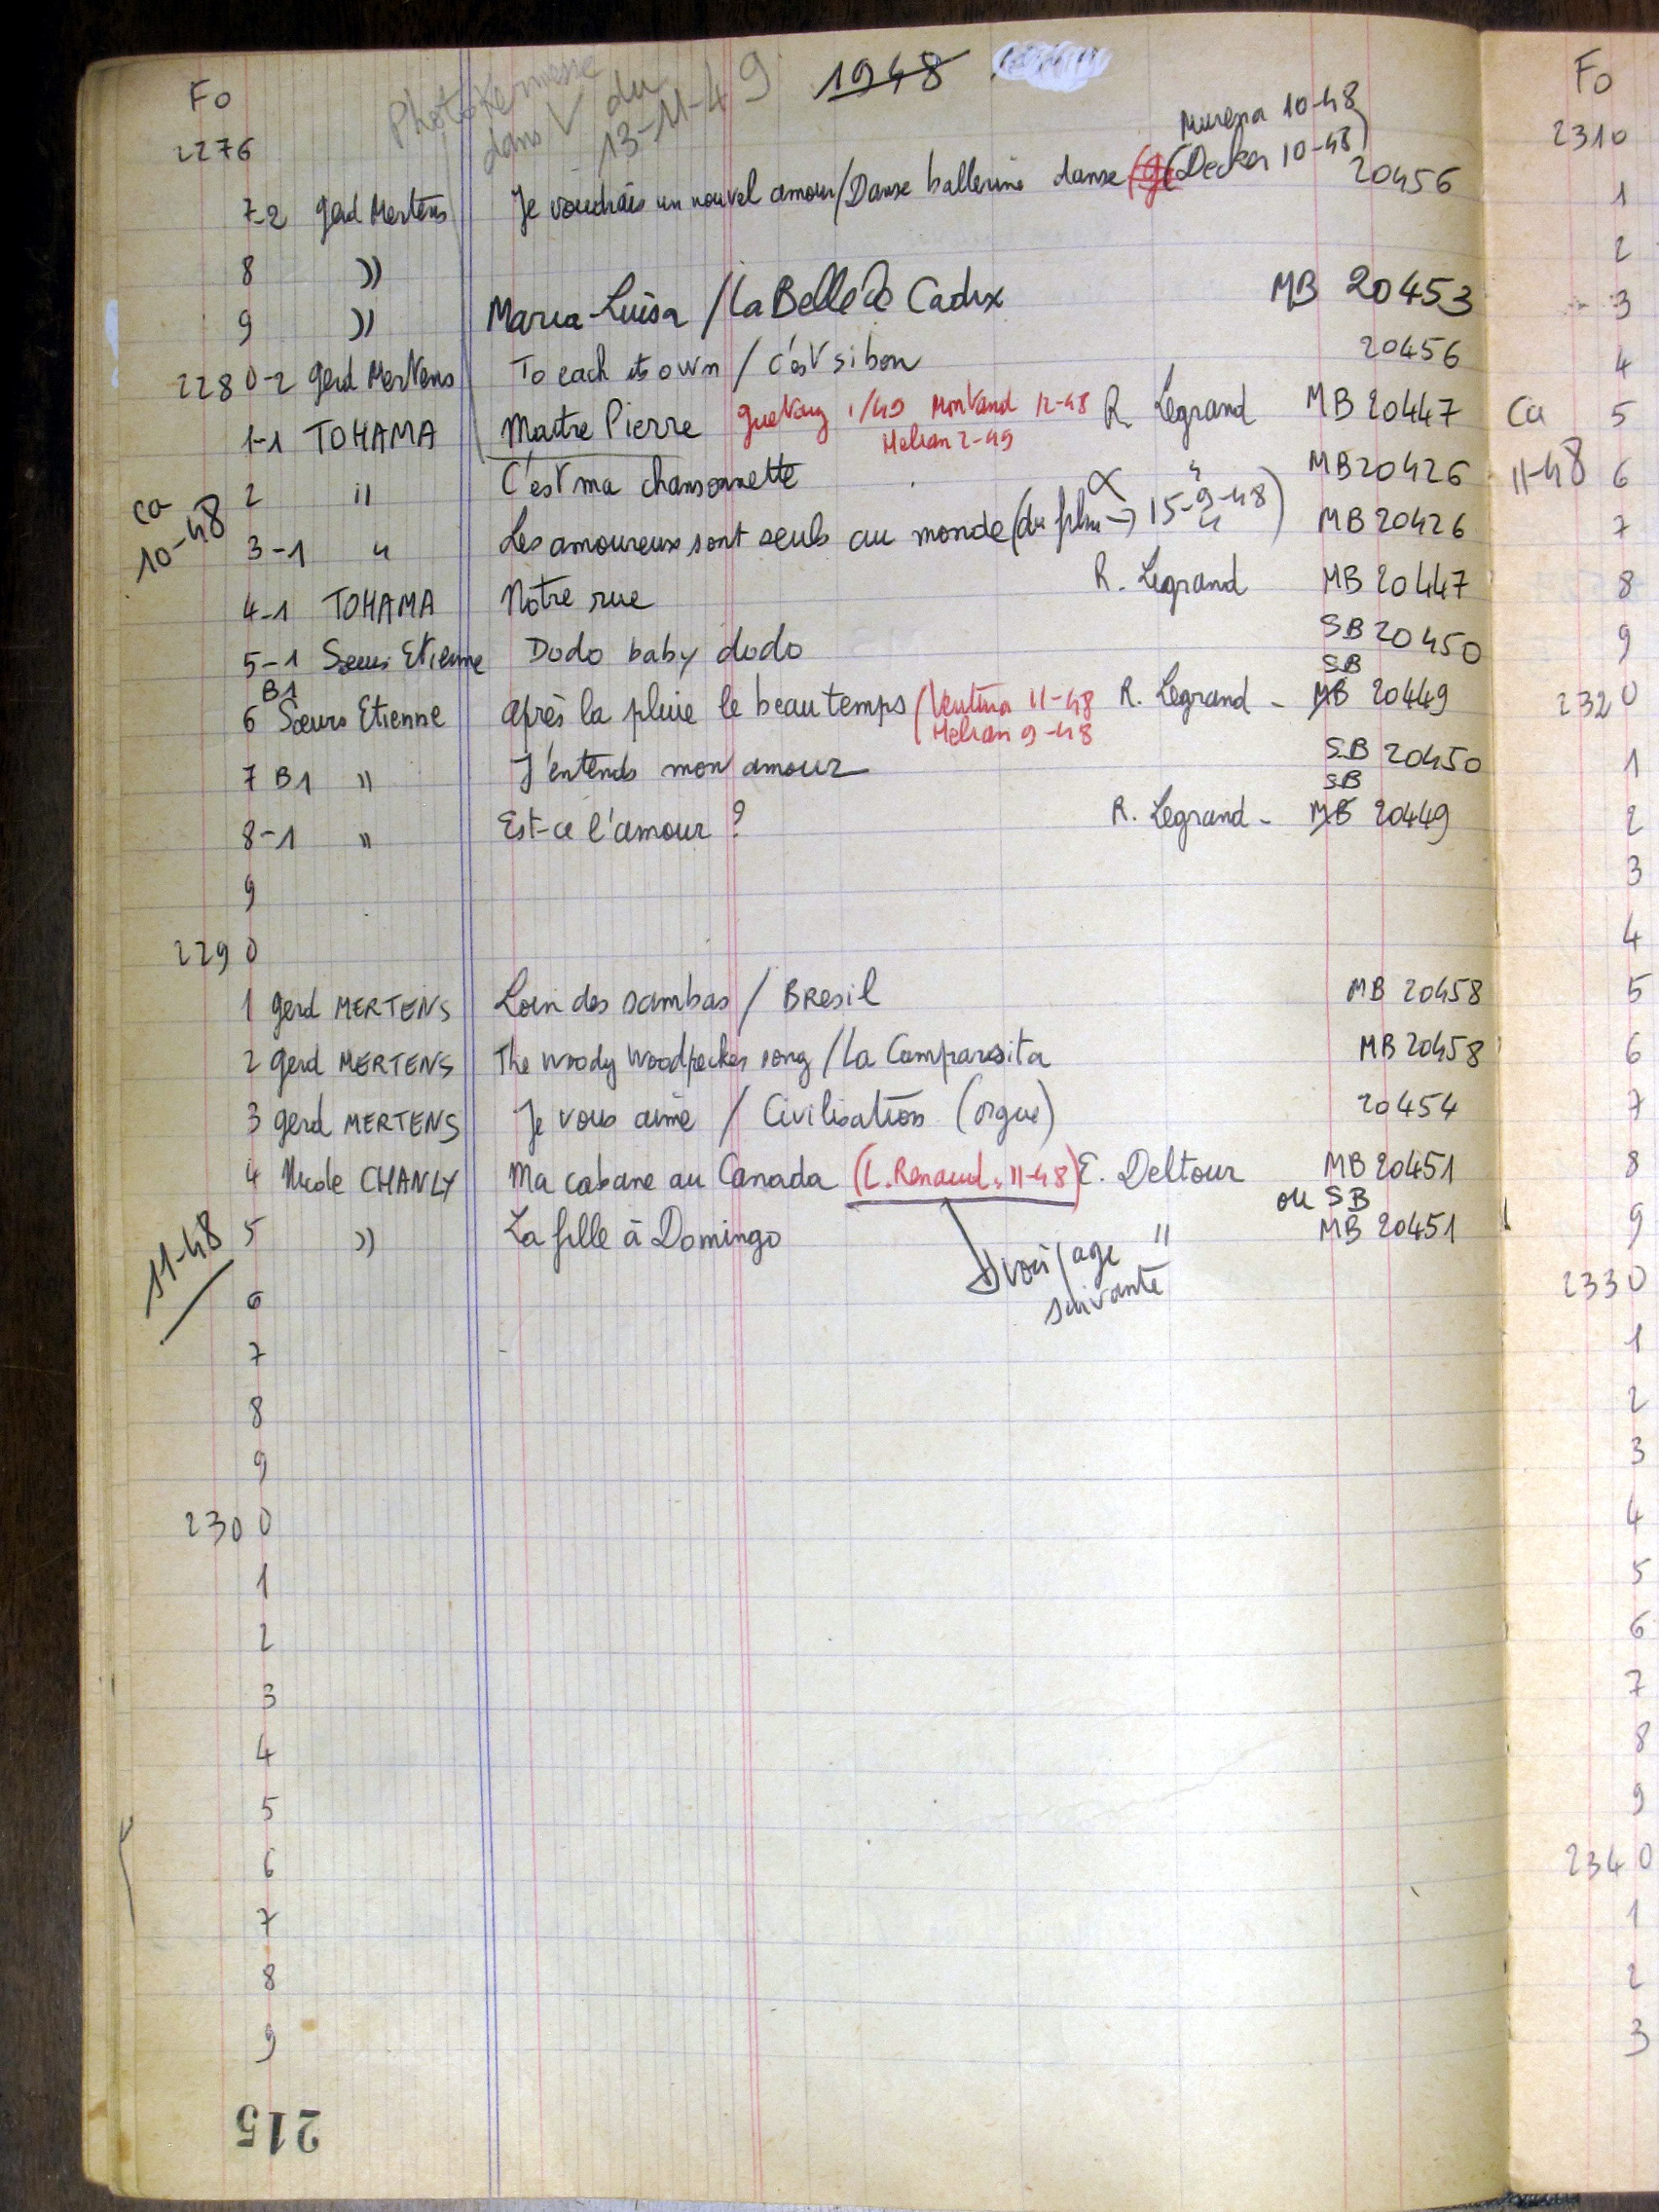 Fo
Photo Kermesse
dans V du
13-11-49
1948
2276
Murena 10-48
7-2 Gerd Mertens Je voudrais un nouvel amour/Danse ballerine danse (Decker 10-48) 20456
8 ))
9 )) Maria-Luisa / La Belle de Cadix MB 20453
2280-2 Gerd Mertens To each its own / C'est si bon 20456
1-1 TOHAMA Maitre Pierre 1/49 Montand 12-48 R. Legrand MB 20447
Melian 2-49
ca
10-48
2 " C'est ma chansonnette " MB 20426
3-1 " Les amoureux sont seuls au monde (du film → 15-9-48) " MB 20426
4-1 TOHAMA Notre rue R. Legrand MB 20447
5-1 Soeurs Etienne Dodo baby dodo SB 20450
B1 SB
6 Soeurs Etienne après la pluie le beau temps (Ventura 11-48 R. Legrand - MB 20449
Melian 9-48
7 B1 " J'entends mon amour SB 20450
SB
8-1 " Est-ce l'amour ? R. Legrand - MB 20449
9
2290
1 Gerd MERTENS Loin des sambas / BRESIL MB 20458
2 Gerd MERTENS The Woody Woodpecker song / La Cumparsita MB 20458
3 Gerd MERTENS Je vous aime / Civilisation (orgue) 20454
4 Nicole CHANLY Ma cabane au Canada (L. Renaud. 11-48) E. Deltour MB 20451
ou SB
5 )) La fille à Domingo " MB 20451
voir page
suivante
11-48
6
7
8
9
2300
1
2
3
4
5
6
7
8
9
215
Fo
2310
1
2
3
4
Ca 5
11-48 6
7
8
9
2320
1
2
3
4
5
6
7
8
9
2330
1
2
3
4
5
6
7
8
9
2340
1
2
3